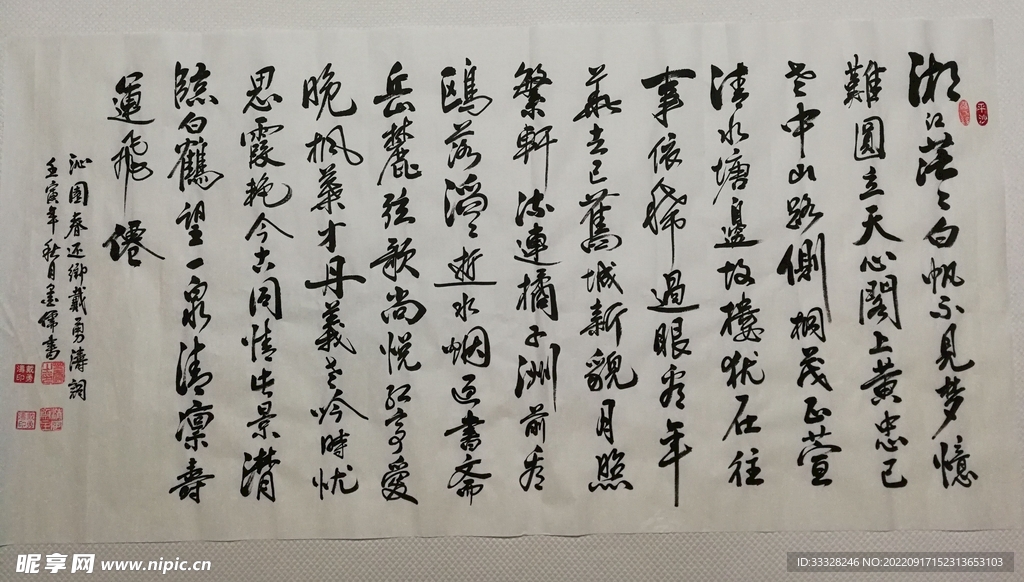 湘江茫茫白帆不见梦忆
難圆立天心閣上黄忠已
老中山路側桐茂正萱
清水塘邊故樓犹在往
事依稀過眼卷年
華去已舊城新貌月照
繁軒流連橘子洲前卷
鷗落滔滔逝水烟迎書斋
岳麓弦歌尚悦红亭愛
晚枫葉才丹義老吟時忧
思霞艳今古同情此景潸
臨白鶴望一泉清凛壽
運飛僊
沁園春还鄉戴勇濤詞
壬寅年秋月
昵享网 www.nipic.cn
ID:33328246 NO:20220917152313653103